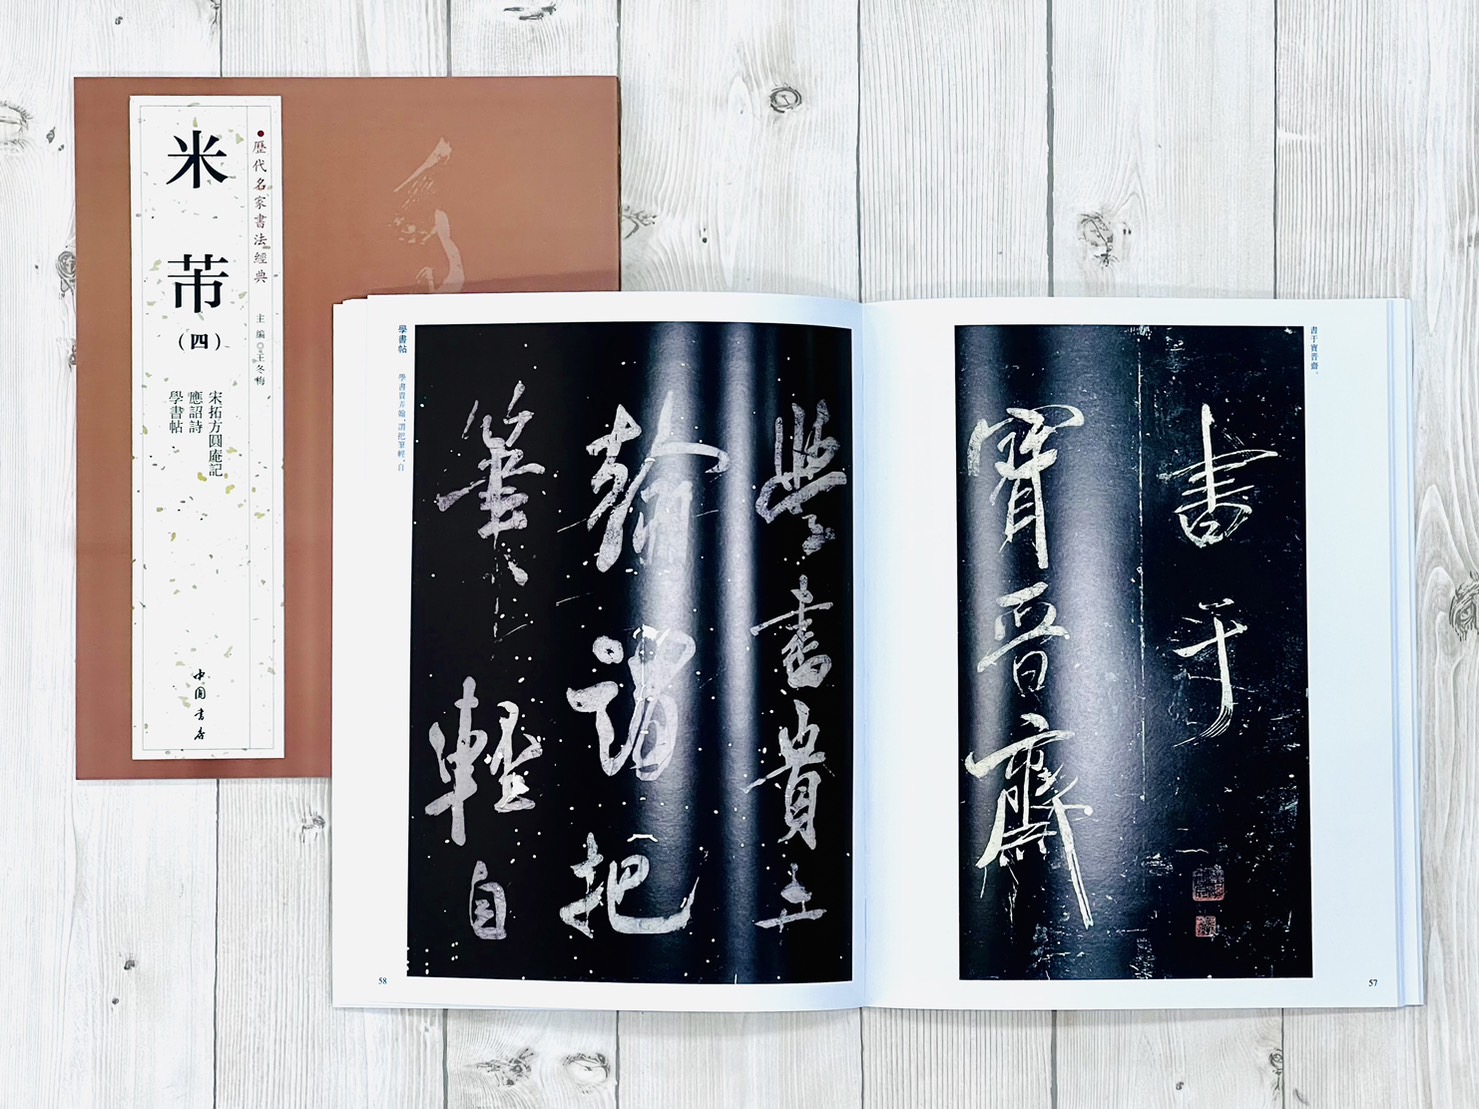 歷代名家書法經典
主編◎王冬梅
米芾
(四)
宋拓方圓庵記
應詔詩
學書帖
中國書店
書于寶晉齋。
書于
寶晉齋
57
學書帖
學書貴弄翰,謂把筆輕,自
學書貴弄
翰謂把
筆輕自
58